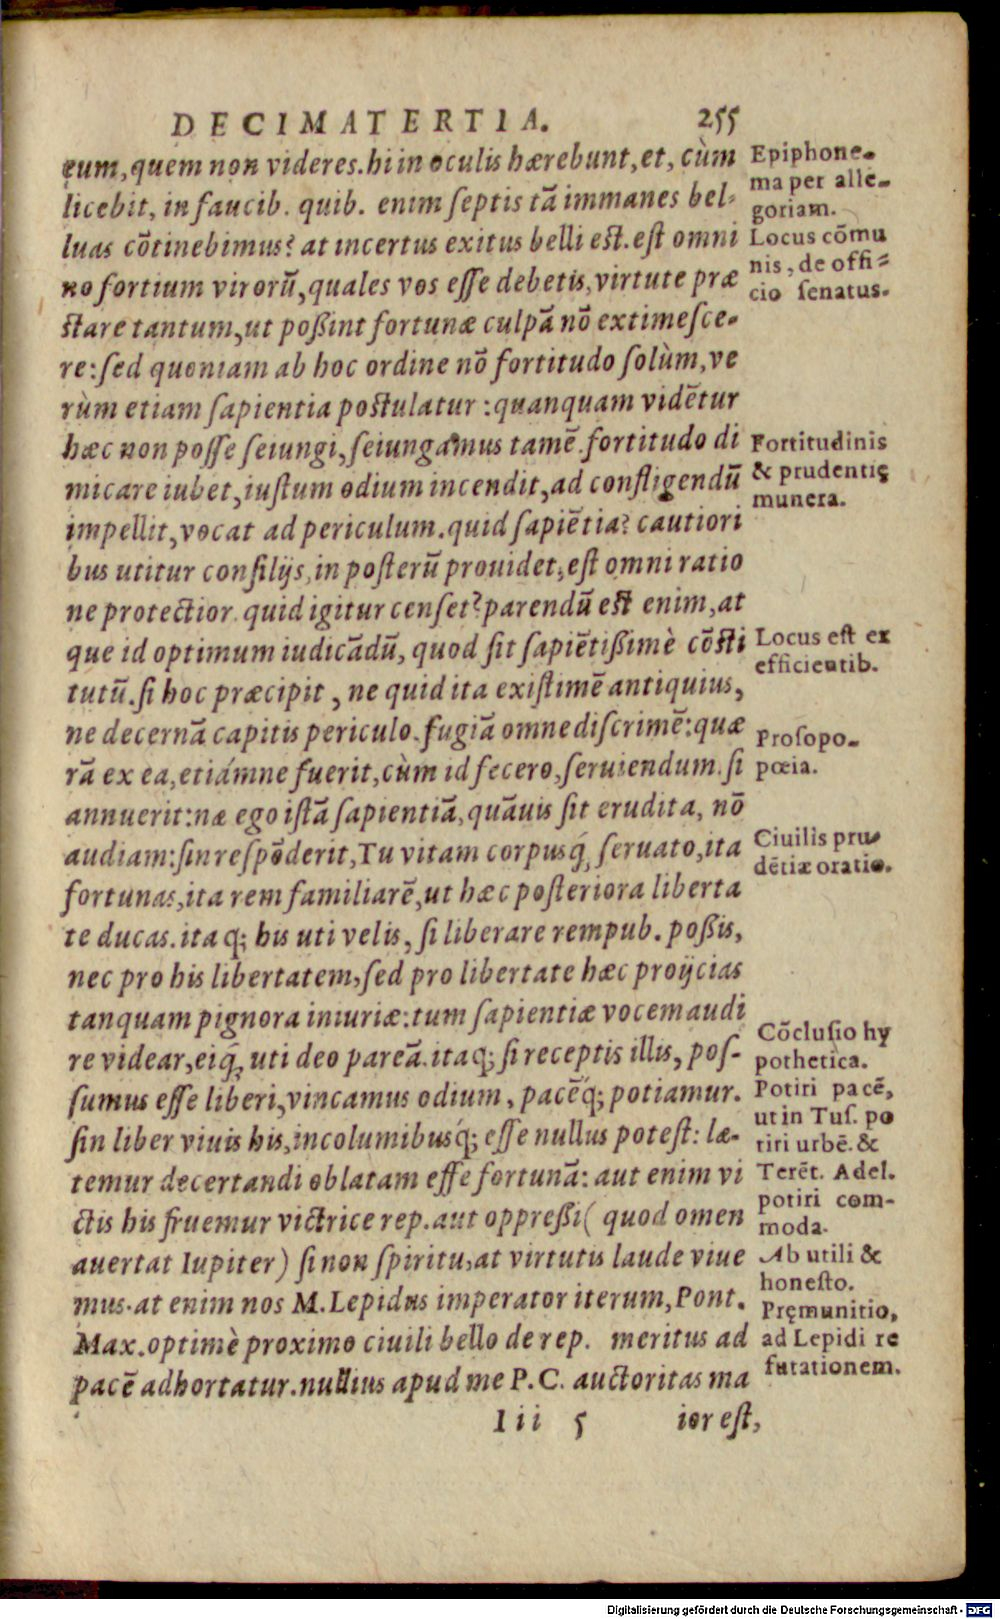 DECIMATERTIA. 255
eum, quem non videres. hi in oculis hærebunt, et, cùm
licebit, in faucib. quib. enim ſeptis tā immanes bel-
luas cōtinebimus? at incertus exitus belli eſt. eſt omni
no fortium virorū, quales vos eſſe debetis, virtute præ
ſtare tantum, ut poßint fortunæ culpā nō extimeſce-
re: ſed quoniam ab hoc ordine nō fortitudo ſolùm, ve
rùm etiam ſapientia poſtulatur: quanquam vidētur
hæc non poſſe ſeiungi, ſeiungamus tamē. fortitudo di
micare iubet, iuſtum odium incendit, ad confligendū
impellit, vocat ad periculum. quid ſapiētia? cautiori
bus utitur conſilijs, in poſterū prouidet, eſt omni ratio
ne protectior. quid igitur cenſet? parendū eſt enim, at
que id optimum iudicādū, quod ſit ſapiētißimè cōſti
tutū. ſi hoc præcipit, ne quid ita exiſtimē antiquius,
ne decernā capitis periculo. fugiā omne diſcrimē: quæ
rā ex ea, etiámne fuerit, cùm id fecero, ſeruiendum. ſi
annuerit: næ ego iſtā ſapientiā, quāuis ſit erudita, nō
audiam: ſin reſpōderit, Tu vitam corpusq́; ſeruato, ita
fortunas, ita rem familiarē, ut hæc poſteriora liberta
te ducas. itaq; his uti velis, ſi liberare rempub. poßis,
nec pro his libertatem, ſed pro libertate hæc proijcias
tanquam pignora iniuriæ: tum ſapientiæ vocem audi
re videar, eiq́; uti deo pareā. itaq; ſi receptis illis, poſ-
ſumus eſſe liberi, vincamus odium, pacēq́; potiamur.
ſin liber viuis his, incolumibusq́; eſſe nullus poteſt: læ-
temur decertandi oblatam eſſe fortunā: aut enim vi
ctis his fruemur victrice rep. aut oppreßi (quod omen
auertat Iupiter) ſi non ſpiritu, at virtutis laude viue
mus. at enim nos M. Lepidus imperator iterum, Pont.
Max. optimè proximo ciuili bello de rep. meritus ad
pacē adhortatur. nullius apud me P.C. auctoritas ma
Iii 5 ior eſt,
Epiphone-
ma per alle-
goriam.
Locus cōmu
nis, de offi-
cio ſenatus.
Fortitudinis
& prudentię
munera.
Locus eſt ex
efficientib.
Proſopo-
pœia.
Ciuilis pru
dētiæ oratio.
Cōcluſio hy
pothetica.
Potiri pacē,
ut in Tuſ. po
tiri urbē. &
Terēt. Adel.
potiri com-
moda.
Ab utili &
honeſto.
Pręmunitio,
ad Lepidi re
futationem.
Digitalisierung gefördert durch die Deutsche Forschungsgemeinschaft - DFG